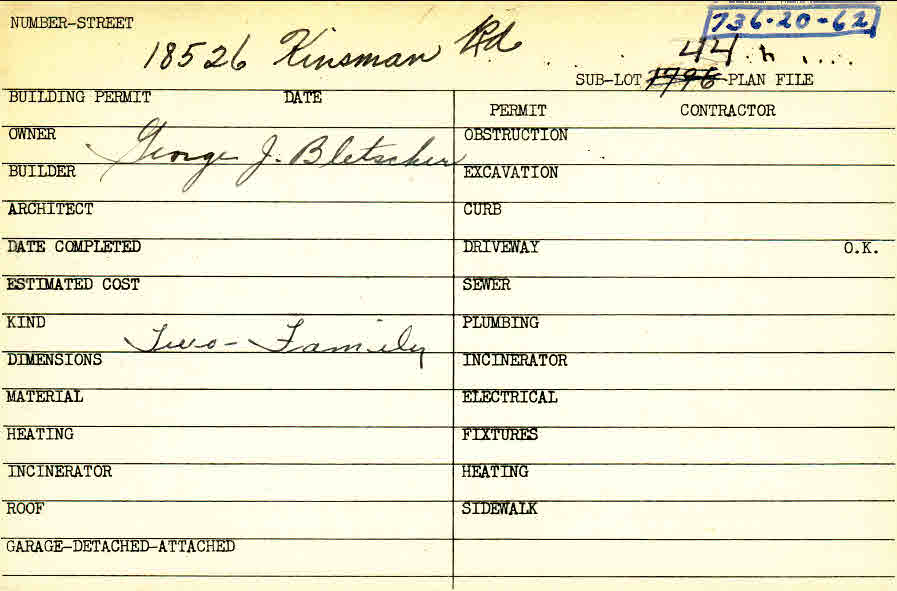 NUMBER-STREET
736-20-62
18526 Kinsman Rd
44
SUB-LOT 1796 -PLAN FILE
BUILDING PERMIT DATE
PERMIT CONTRACTOR
OWNER George J. Bletscher
OBSTRUCTION
BUILDER
EXCAVATION
ARCHITECT
CURB
DATE COMPLETED
DRIVEWAY O.K.
ESTIMATED COST
SEWER
KIND Two-Family
PLUMBING
DIMENSIONS
INCINERATOR
MATERIAL
ELECTRICAL
HEATING
FIXTURES
INCINERATOR
HEATING
ROOF
SIDEWALK
GARAGE-DETACHED-ATTACHED